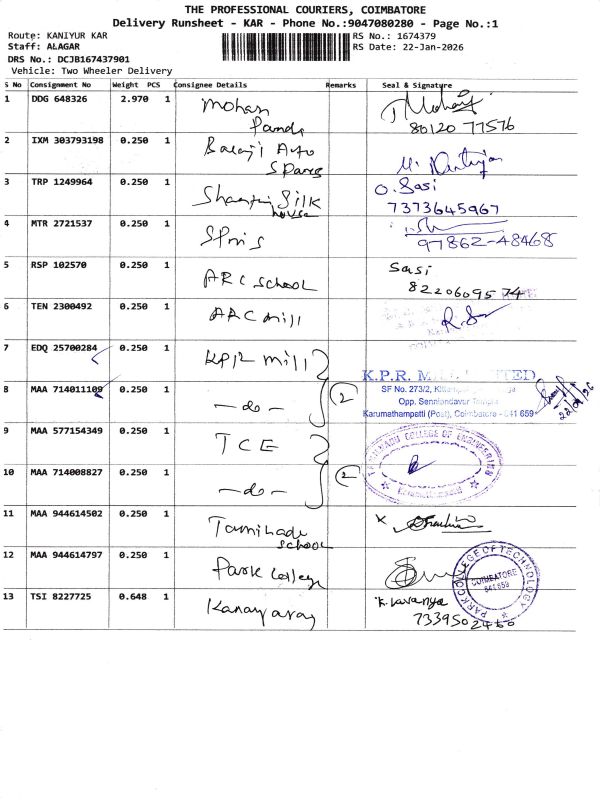 THE PROFESSIONAL COURIERS, COIMBATORE
Delivery Runsheet - KAR - Phone No.:9047080280 - Page No.:1
Route: KANIYUR KAR
RS No.: 1674379
Staff: ALAGAR
RS Date: 22-Jan-2026
DRS No.: DCJB167437901
Vehicle: Two Wheeler Delivery
S No Consignment No Weight PCS Consignee Details Remarks Seal & Signature
1 DDG 648326 2.970 1 Mohan
80120 77576
2 IXM 303793198 0.250 1 Balaji Auto
Spares
3 TRP 1249964 0.250 1 Silk O. Sasi
house 7373645967
4 MTR 2721537 0.250 1
97862-48468
5 RSP 102570 0.250 1 ARC School Sasi
82206095 74
6 TEN 2300492 0.250 1 ARC mill
7 EDQ 25700284 0.250 1 KPR mill
K.P.R. MILL LIMITED
8 MAA 714011109 0.250 1 -do- 2
SF No. 273/2,
Opp. Senniandavar Temple
Karumathampatti (Post), Coimbatore - 641 659
9 MAA 577154349 0.250 1 TCE
COLLEGE OF ENGINEERING
10 MAA 714008827 0.250 1 -do- 2
11 MAA 944614502 0.250 1 Tamilnadu
School
12 MAA 944614797 0.250 1 Park College
PARK COLLEGE OF TECHNOLOGY
COIMBATORE
641 659
13 TSI 8227725 0.648 1 K. Lavanya
7339502460